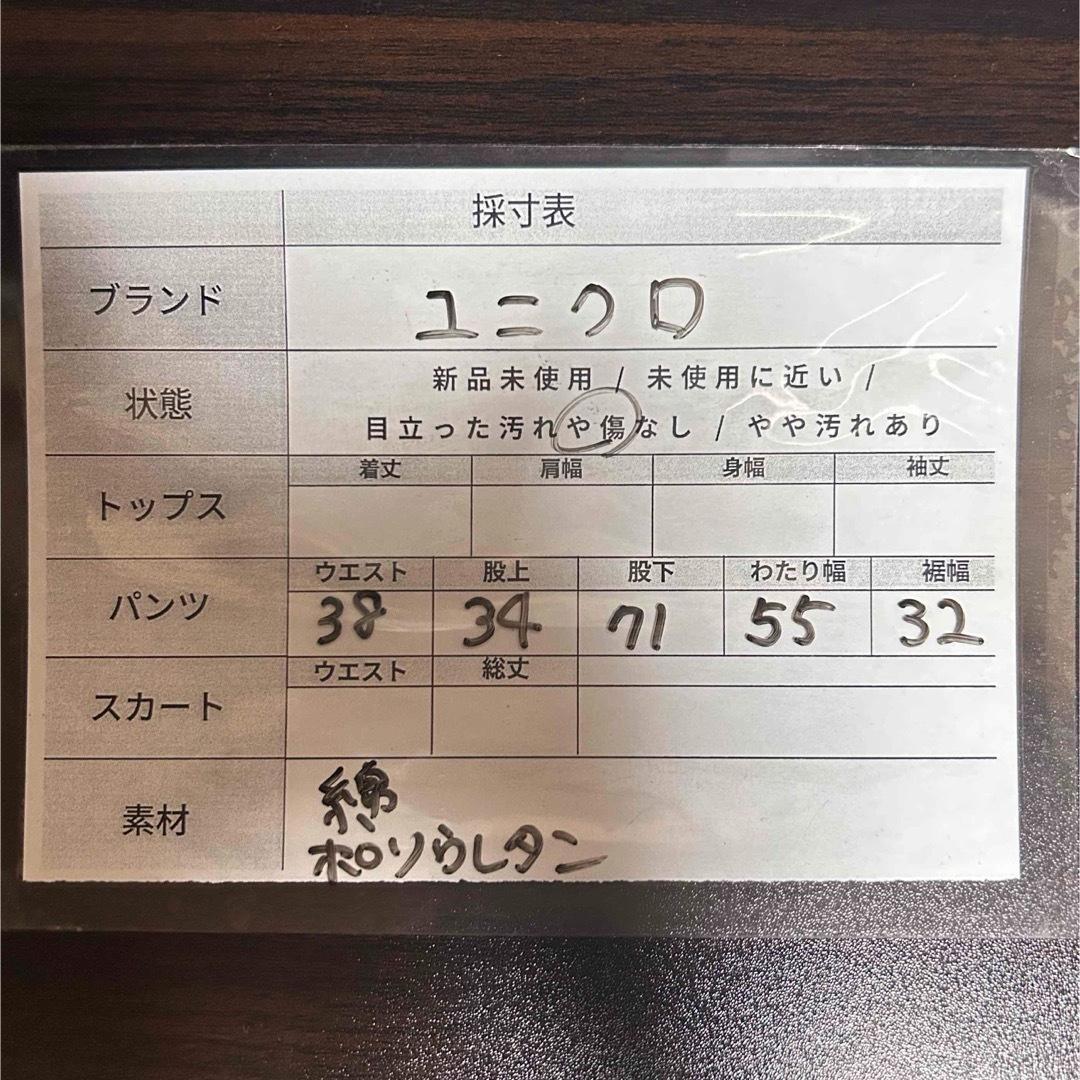 採寸表
ブランド
ユニクロ
状態
新品未使用 / 未使用に近い /
目立った汚れや傷なし / やや汚れあり
トップス
着丈 肩幅 身幅 袖丈
パンツ
ウエスト 股上 股下 わたり幅 裾幅
38 34 71 55 32
スカート
ウエスト 総丈
素材
綿、
ポリウレタン